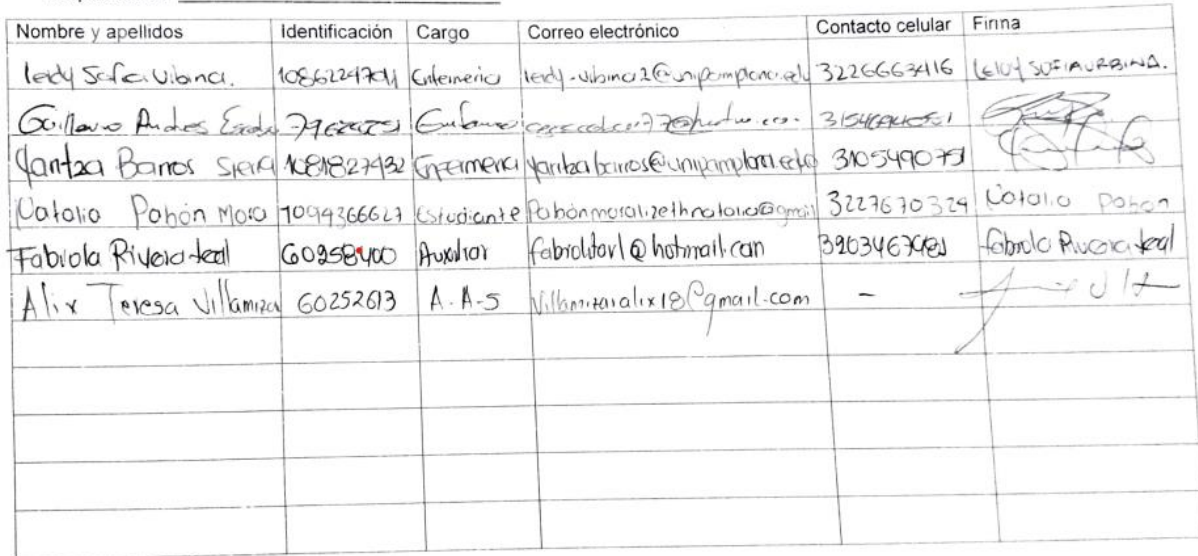 Nombre y apellidos Identificación Cargo Correo electrónico Contacto celular Firma
leidy Sofia Urbina. Enfermeria 3226663416 LEIDY SOFIA URBINA.
Guillermo Andres
Yaritza Barros Sierra 1081827432 Enfermeria yaritzabarros@unipamplona.edu 3105490751
Natalia Pabón Mora 1094366627 Estudiante Pabonmoralizethnatalia@gmail 3227670329 Natalia Pabon
Fabiola Rivera Leal 60258400 Auxiliar fabiolitarl@hotmail.com Fabiola Rivera Leal
Alix Teresa Villamizar 60252613 A.A-S Villamizaralix18@gmail.com -